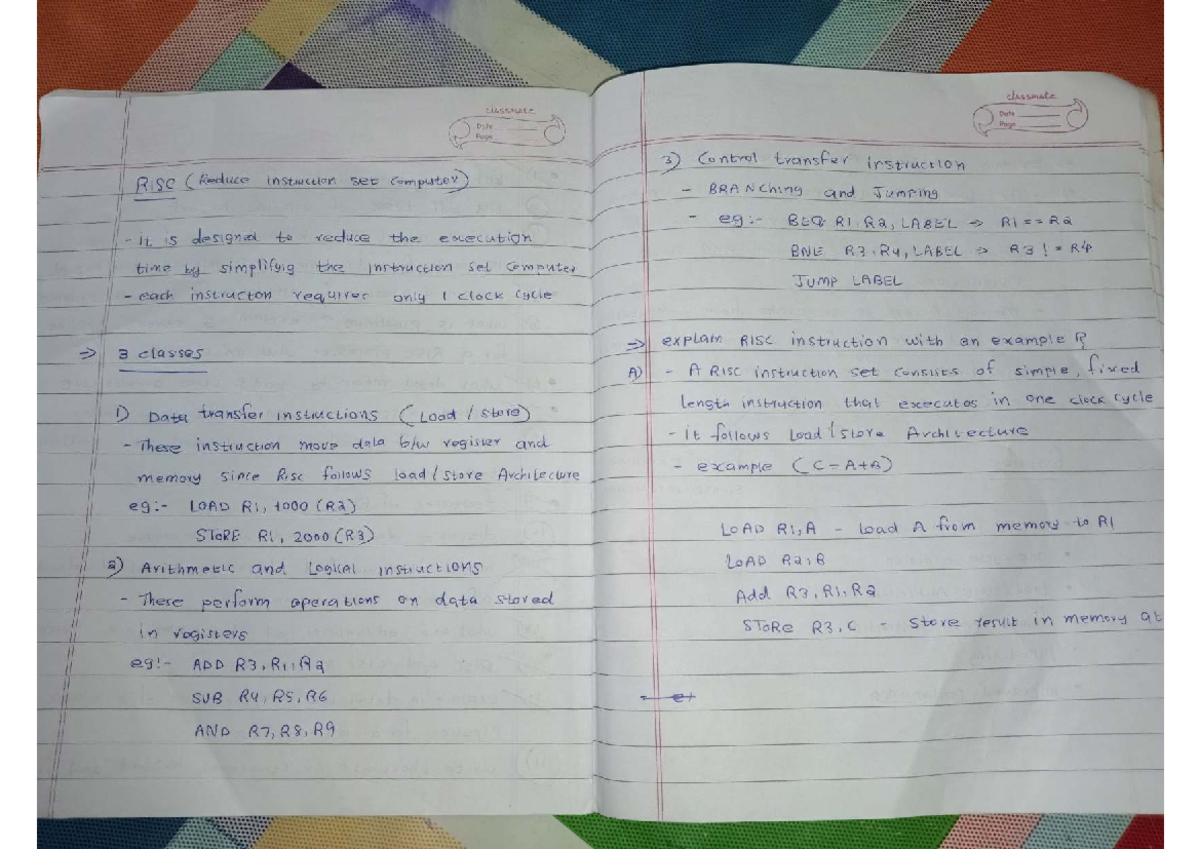 classmate
Date
Page
RISC (Reduce instruction set computer)
- it is designed to reduce the execution
time by simplifyig the instruction set computer
- each instructon requires only 1 clock cycle
=> 3 classes
1) Data transfer instructions (Load / store)
- These instruction move data b/w register and
memory since Risc follows load/store Architecture
eg:- LOAD R1, 1000 (R2)
STORE R1, 2000 (R3)
2) Arithmetic and Logical instructions
- These perform operations on data stored
in registers
eg:- ADD R3, R1, R2
SUB R4, R5, R6
AND R7, R8, R9
classmate
Date
Page
3) Control transfer instruction
- BRANChing and Jumping
- eg:- BEQ R1, R2, LABEL => R1 == R2
BNE R3, R4, LABEL => R3 != R4
JUMP LABEL
=> explain RISC instruction with an example ?
A) - A RISC instruction set consists of simple, fixed
length instruction that executes in one clock cycle
- it follows Load/store Architecture
- example (C = A+B)
LOAD R1, A - load A from memory to R1
LOAD R2, B
Add R3, R1, R2
STORE R3, C - store result in memory at